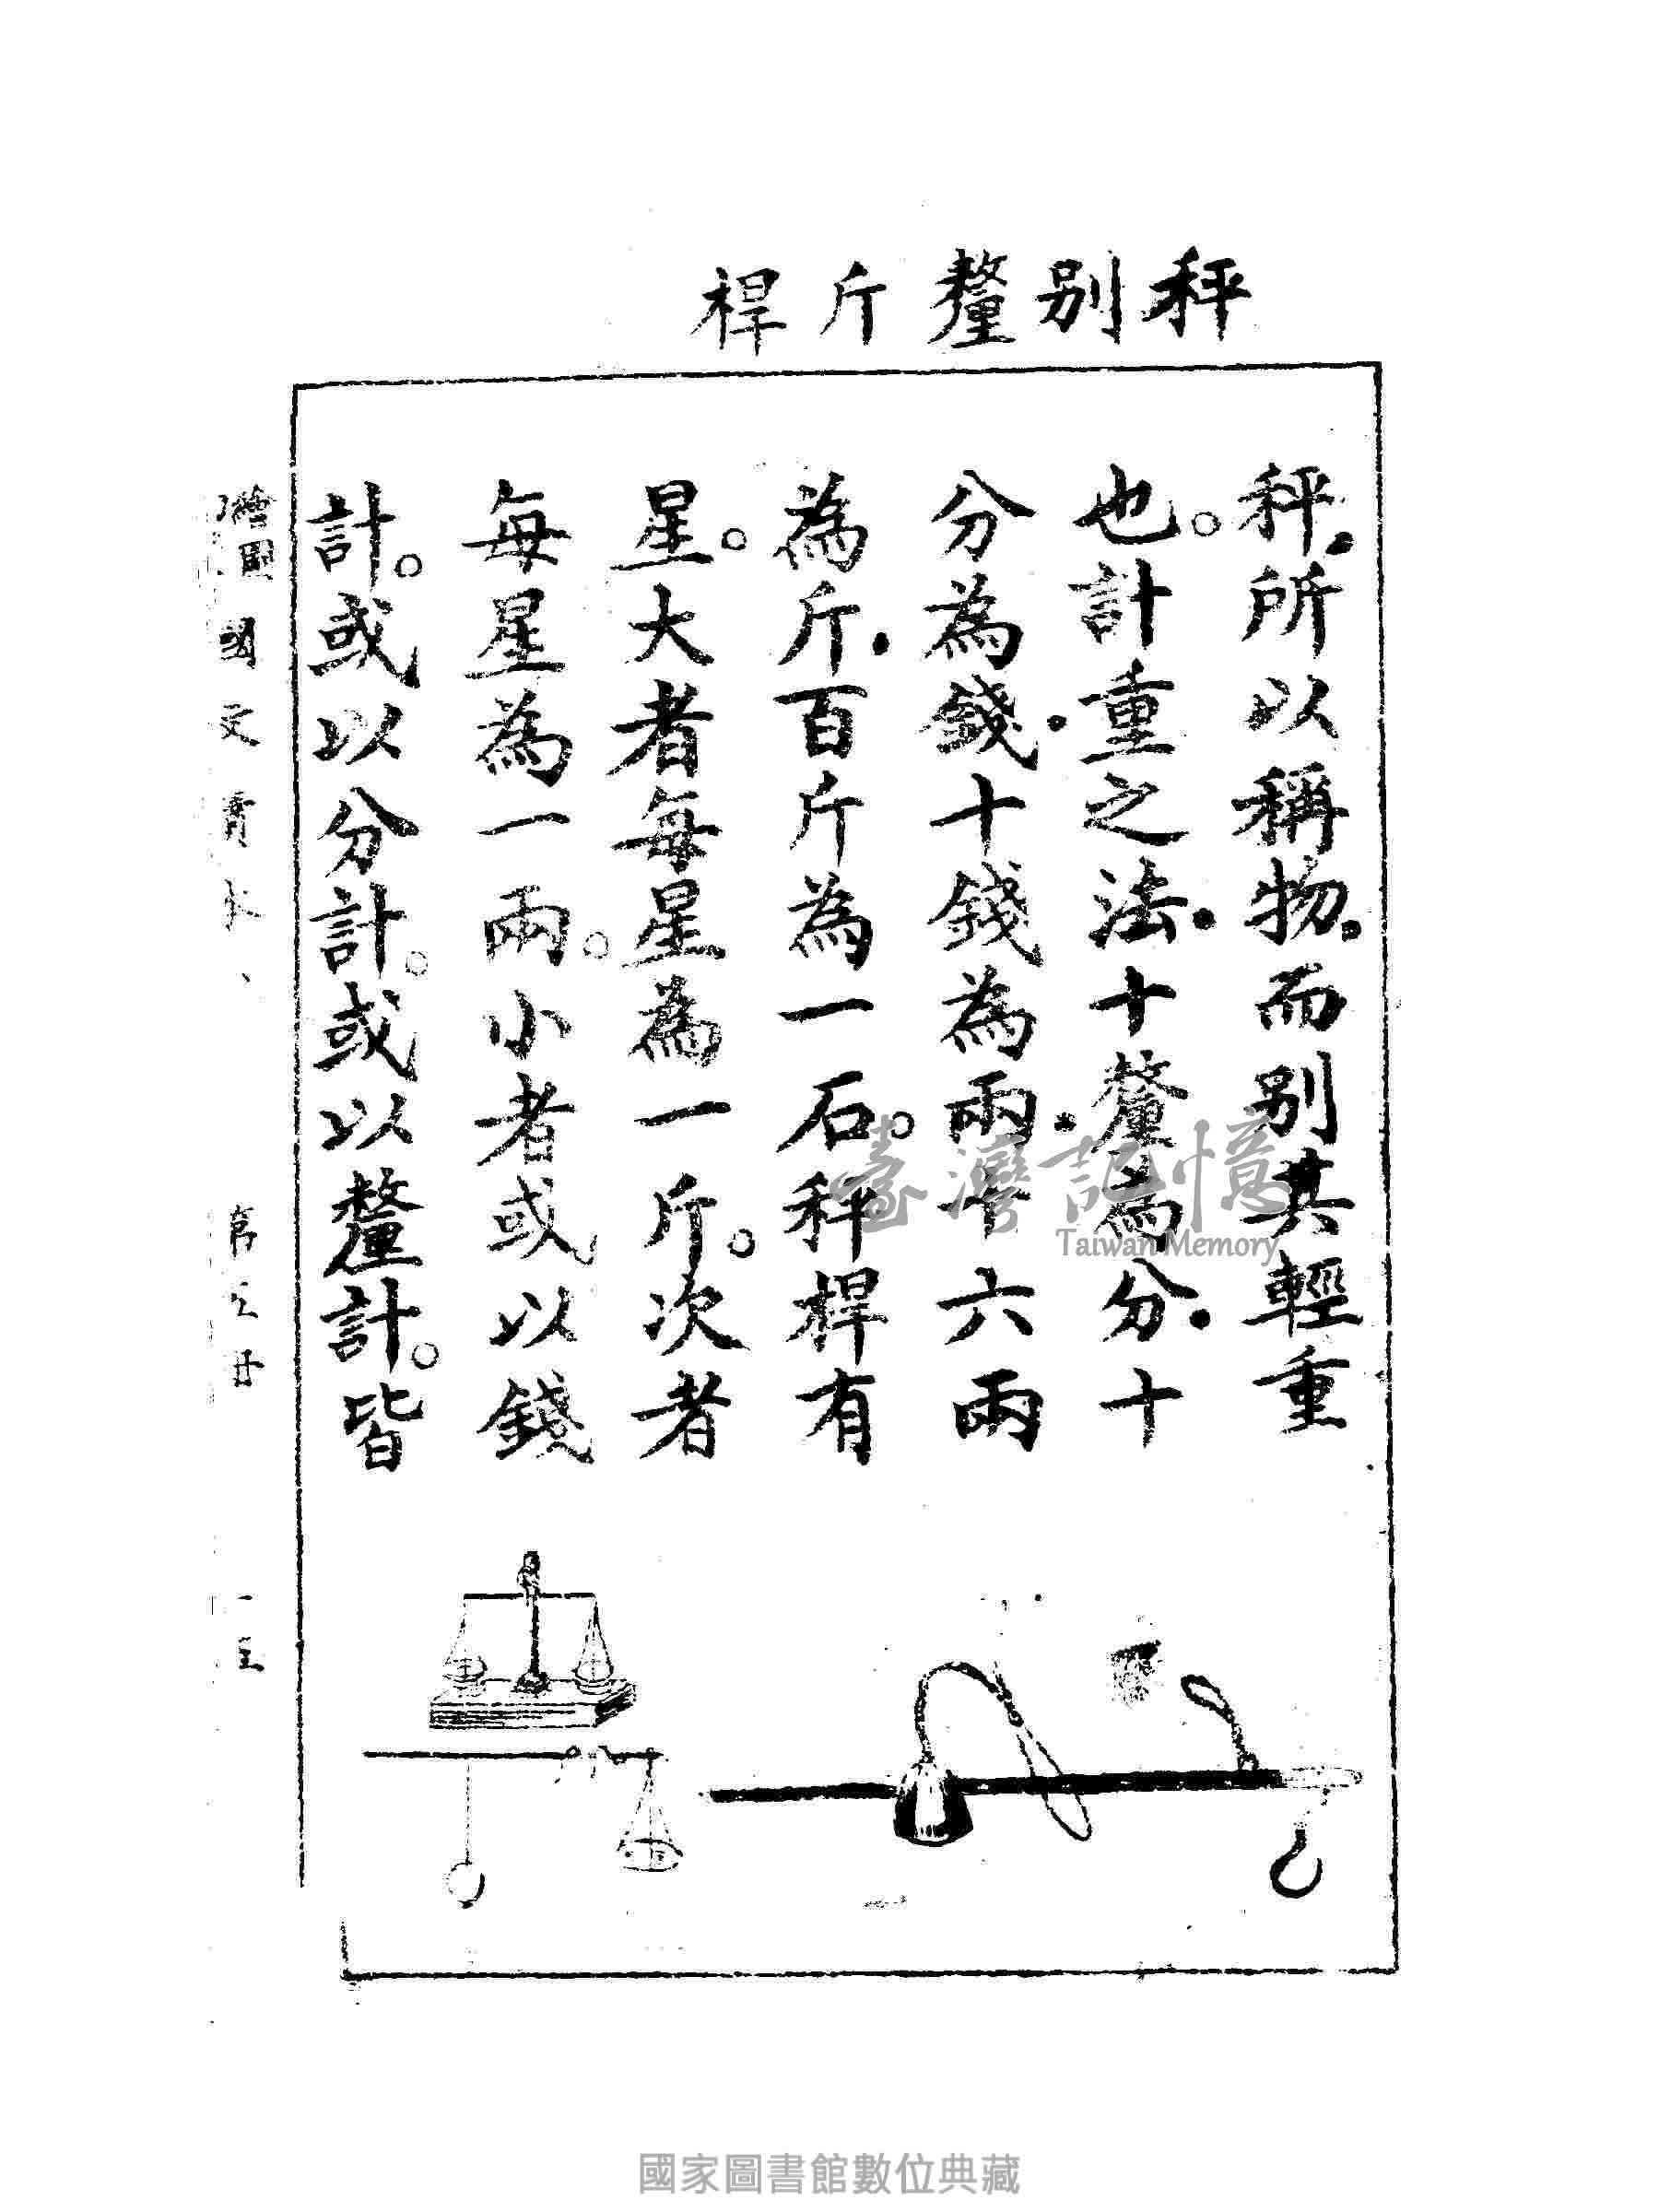 秤別釐斤桿
秤．所以稱物．而別其輕重
也。計重之法．十釐為分．十
分為錢．十錢為兩．十六兩
為斤．百斤為一石。秤桿有
星。大者每星為一斤。次者
每星為一兩。小者或以錢
計。或以分計。或以釐計。皆
繪圖國文
臺灣記憶
Taiwan Memory
國家圖書館數位典藏